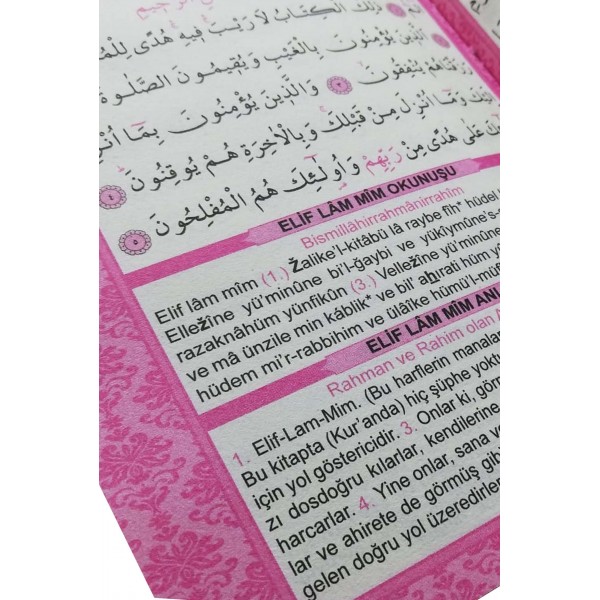 الرحيم
ذٰلِكَ الْكِتَابُ لَا رَيْبَ فِيهِ هُدًى
الَّذِينَ يُؤْمِنُونَ بِالْغَيْبِ وَيُقِيمُونَ الصَّلٰوةَ
رَزَقْنَاهُمْ يُنْفِقُونَ ٣ وَالَّذِينَ يُؤْمِنُونَ بِمَٓا
وَمَٓا اُنْزِلَ مِنْ قَبْلِكَ وَبِالْاٰخِرَةِ هُمْ يُوقِنُونَ ٤
عَلٰى هُدًى مِنْ رَبِّهِمْ وَاُو۬لٰٓئِكَ هُمُ الْمُفْلِحُونَ ٥
ELİF LÂM MÎM OKUNUŞU
Bismillâhirrahmânirrahîm
Elif lâm mîm (1.) Žalike'l-kitâbü lâ raybe fîh* hüdel
Elležîne yü'minûne bi'l-ğaybi ve yükîymûne's-
razaknâhüm yünfikûn (3.) Vellezîne yü'minûne
ve mâ ünzile min káblik* ve bil' ahırati hüm
hüdem mi'r-rabbihim ve ülâike hümü'l-müf
ELİF LÂM MÎM
Rahman ve Rahim olan
1. Elif-Lam-Mim. (Bu harflerin
Bu kitapta (Kur'anda) hiç şüphe
için yol göstericidir. 3. Onlar ki,
zı dosdoğru kılarlar, kendilerine
harcarlar. 4. Yine onlar, sana
lar ve ahirete de görmüş
gelen doğru yol üzeredirler